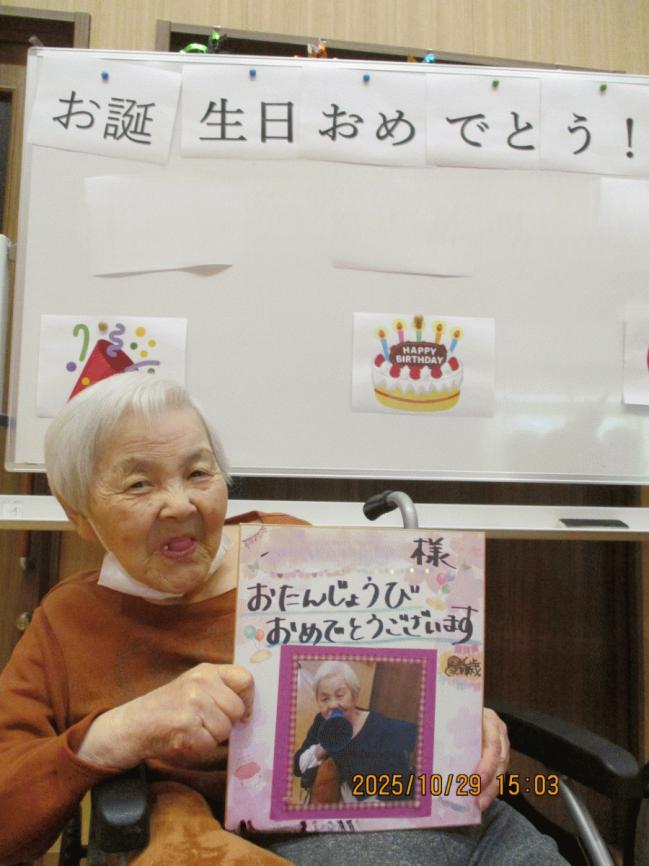 お誕生日おめでとう！
HAPPY
BIRTHDAY
様
おたんじょうび
おめでとうございます
歳
2025/10/29 15:03